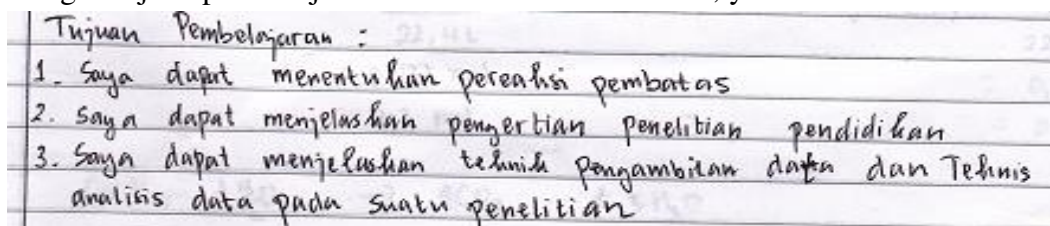 Tujuan Pembelajaran :
1. Saya dapat menentukan pereaksi pembatas
2. Saya dapat menjelaskan pengertian Penelitian pendidikan
3. Saya dapat menjelaskan teknik Pengambilan data dan Teknis
analisis data pada suatu penelitian